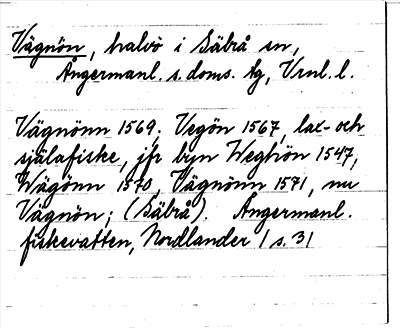 Vägnön, halvö i Säbrå sn,
Ångermanl. s. doms. tg, Vrnl. l.
Vägnönn 1569, Vegön 1567, lax- och
själafiske, jfr byn Weghön 1547,
Wägönn 1570, Vägnönn 1571, nu
Vägnön; (Säbrå). Ångermanl.
fiskevatten, Nordlander 1 s. 31